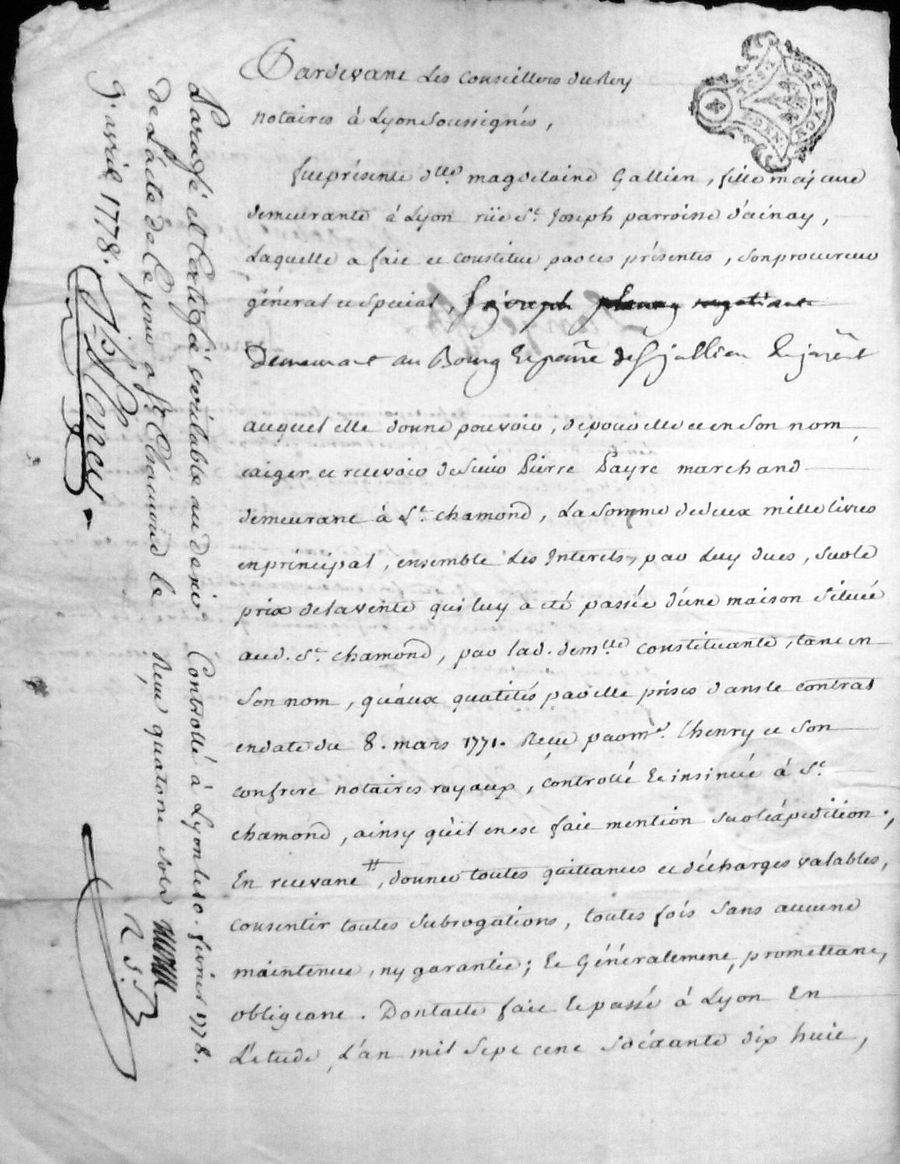 Pardevant Les Conseillers du Roy
notaires à Lyon Soussignés,
fut présente dlle. magdelaine Gallien, fille majeure
demeurante à Lyon rüe St. Joseph parroisse d'ainay,
Laquelle a fait et constitué par ces présentes, son procureur
général et spécial, Sr joseph negotiant
Demeurant au Bourg et parre de St jullien En jarêt
auquel elle donne pouvoir, de pour elle et en Son nom
exiger et recevoir de Sieur Pierre Payre marchand
demeurant à St. chamond, La Somme de deux mille livres
en principal, ensemble Les Interets, par Luy dues, Sur le
prix de la vente qui luy a été passée d'une maison Située
aud. St. chamond, par lad. demlle constituante, tant en
Son nom, qu'aux qualités par elle prises dans le contrat
en date du 8. mars 1771. Reçu par me. Thenry et Son
confrere notaires royaux, controllé et insinué à St.
chamond, ainsy qu'il en est fait mention Sur l'éxpedition;
En recevant #, donner toutes quittances et décharges valables,
consentir toutes Subrogations, toutes fois Sans aucune
maintenue, ny garantie; Et Généralement, promettant,
obligeant. Dont acte fait et passé à Lyon En
L'étude, L'an mil Sept cent Soixante dix huit,
Parafé et Certifié véritable au désir
de L'acte de Ce jour a St Chamond le
9. avril 1778.
Controllé à Lyon le 10 fevrier 1778.
Reçu quatorze sols
GEN